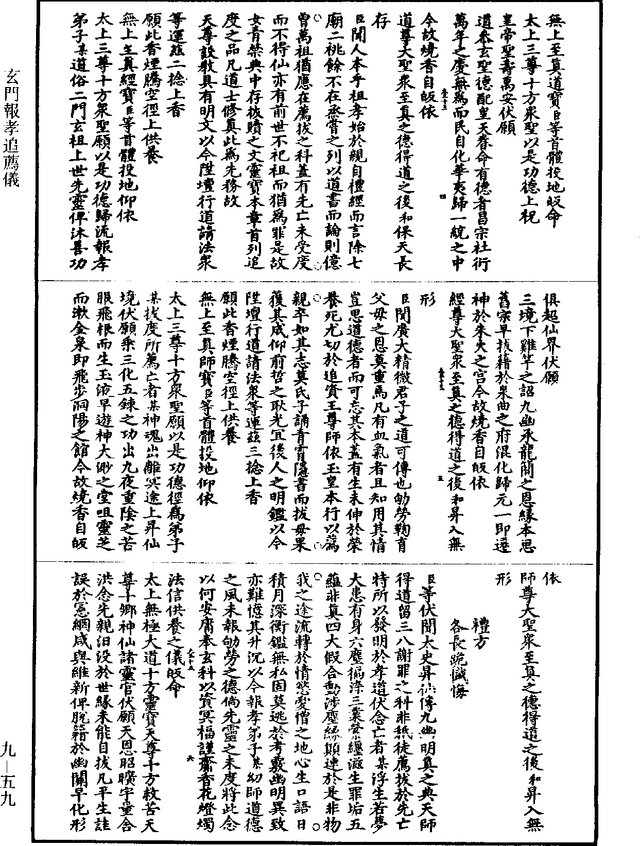 無上至真道寶臣等首體投地皈命
太上三尊十方衆聖以是功德上祝
皇帝聖壽萬安伏願
道參玄聖德配皇天春命有德者昌宗社衍
萬年之慶無為而民自化華夷歸一統之中
今故燒香自皈依
道尊大聖衆至真之德得道之後和保天長
存
臣聞人本乎祖孝始於親自禮經而言除七
廟二祧餘不在烝嘗之列以道書而論則億
曾萬祖猶應在薦拔之科蓋有先亡未受度
而不得仙亦有前世不祀祖而猶為罪是故
女青榮典中存拔贖之文靈寶本章首列追
度之品凡道士修真此為先務故
天尊設教具有明文以今陞壇行道請法衆
等運茲二捻上香
願此香煙騰空徑上供養
無上至真經寶臣等首體投地仰依
太上三尊十方衆聖願以是功德歸流報孝
弟子某道俗二門玄祖上世先靈俾沐善功
俱超仙界伏願
三境下雞竿之詔九幽承龍簡之恩緣本思
舊宗早拔籍於朱曲之府混化歸元一即遷
神於朱火之宮今故燒香自皈依
經尊大聖衆至真之德得道之後和昇入無
形
臣聞廣大精微君子之道可傳也劬勞鞠育
父母之恩莫重焉凡有血氣者且知用其情
豈思道德者而可忘其本蓋有生未伸於榮
養死尤切於追資王尊師依玉皇本行以薦
親卒如其志莫氏子誦青霄隱書而拔母果
獲其咸仰前哲之耿光宜後人之明鑑以今
陞壇行道請法衆等運茲三捻上香
願此香煙騰空徑上供養
無上至真師寶臣等首體投地仰依
太上三尊十方衆聖願以是功德徑為弟子
某拔度所薦亡者某神魂出離冥途上昇仙
境伏願乘三化五鍊之功出九夜重陰之苦
服飛根而生玉液早遊神大㵀之堂咀靈芝
而漱金泉即飛步洞陽之館今故燒香自皈
依
師尊大聖衆至真之德得道之後和昇入無
形
禮方
各長跪懺悔
臣等伏聞太史昇仙傳九幽明真之典天師
得道留三八謝罪之科非祇徒薦拔於先亡
特所以發明於孝道伏念亡者某浮生若夢
大患有身六塵搞染三業縈纏遊生罪垢五
蘊非真四大假合動涉塵緣頗連於是非物
我之途流轉於情慾愛憎之地心生口語日
積月深衡鑑無私固莫逃於考覈幽明異致
亦難憶其升沉以今報孝弟子某幼師道德
之風未報劬勞之德倘先靈之未度將此念
以何安庸奉玄科以資冥福謹齎香花燈燭
法信供養之儀皈命
太上無極大道十方靈寶天尊十方救苦天
尊三十二卿神仙諸靈官伏願天恩昭曠宇量含
洪念先親汨没於世緣未能自拔凡平生詿
誤於冤綱咸與維新俾脱籍於幽關早化形
玄門報孝追薦儀
九—五九